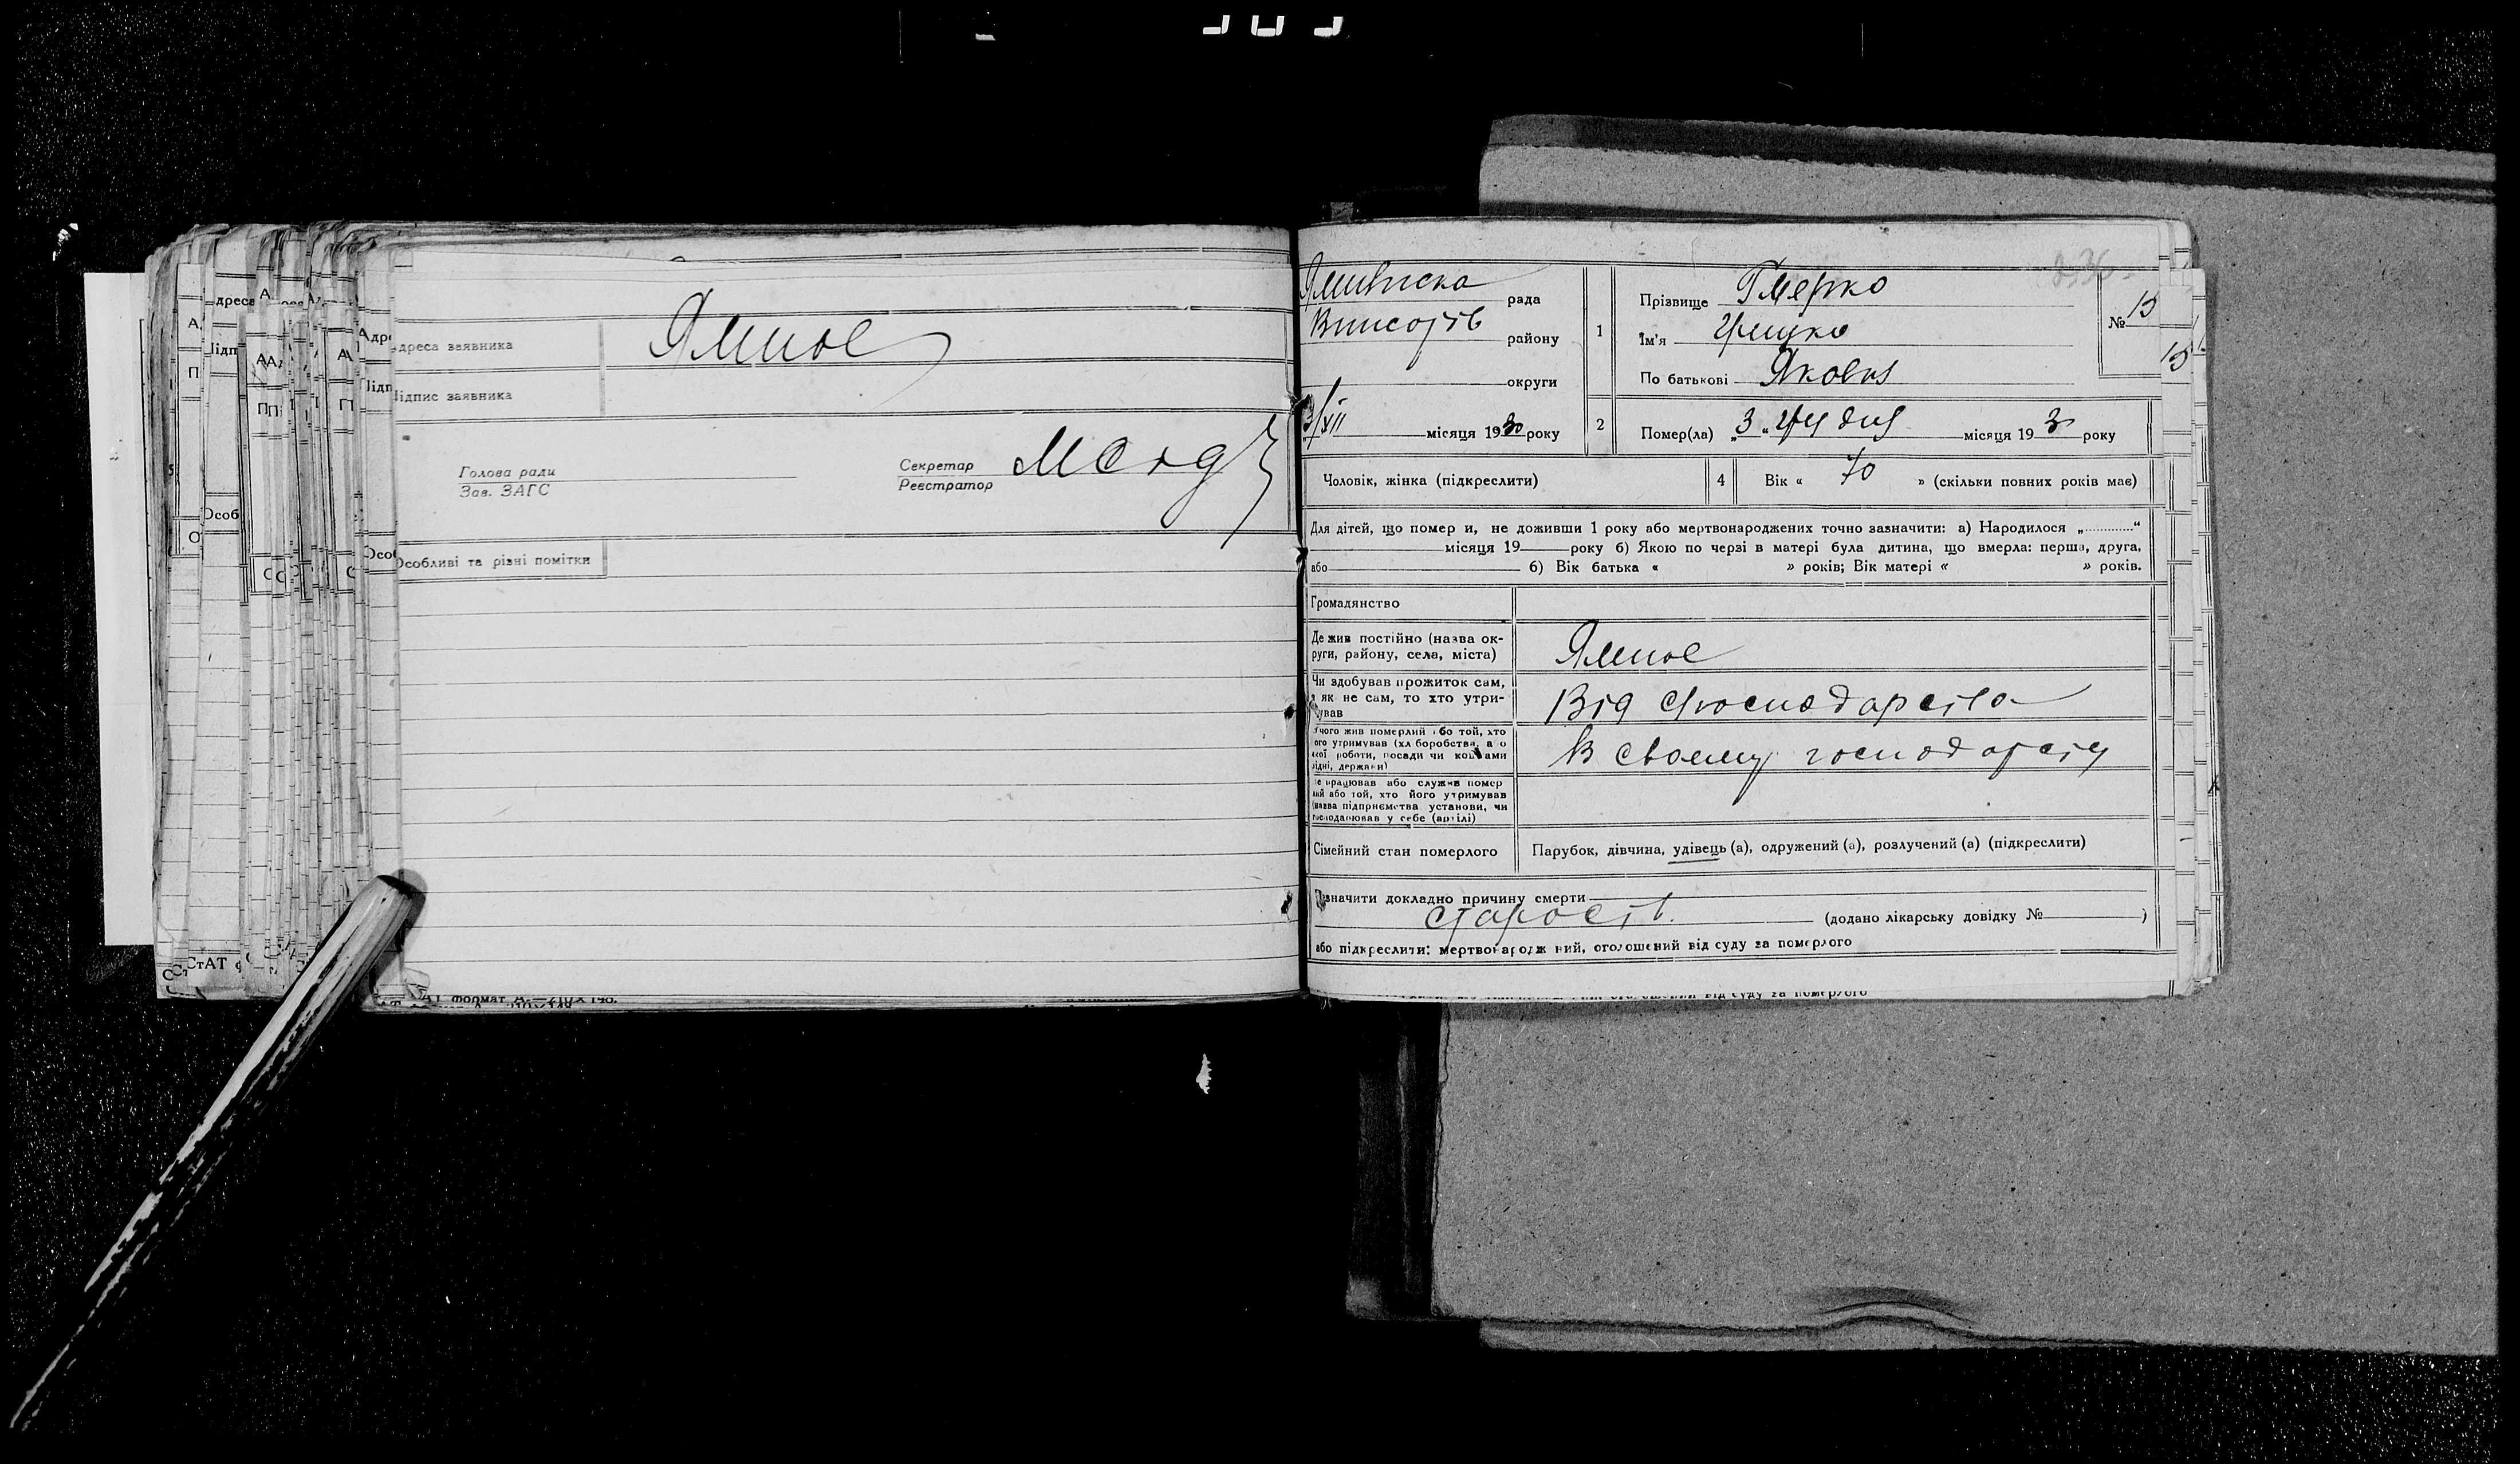 Адреса заявника Ямное
Підпис заявника
Голова ради
Зав. ЗАГС
Секретар
Реєстратор
Особливі та різні помітки
рада
району
округи
3/XII місяця 1930 року
1
Прізвище
Ім'я Грицко
По батькові Яковил
№ 15
2
Помер(ла) „3“ грудня місяця 1930 року
Чоловік, жінка (підкреслити)
4
Вік « 70 » (скільки повних років має)
Для дітей, що помер и, не доживши 1 року або мертвонароджених точно зазначити: а) Народилося „............“
місяця 19 року б) Якою по черзі в матері була дитина, що вмерла: перша, друга,
або б) Вік батька « » років; Вік матері « » років.
Громадянство
Де жив постійно (назва ок-
руги, району, села, міста)
Ямное
Чи здобував прожиток сам,
а як не сам, то хто утри-
мував
Від господарства
З чого жив померлий або той, хто
його утримував (хл боробства, а о
якої роботи, посади чи коштами
рідні, держави)
В своему господарству
Де працював або служив помер
лий або той, хто його утримував
(назва підприємства установи, чи
господарював у себе (артілі)
Сімейний стан померлого
Парубок, дівчина, удівець (а), одружений (а), розлучений (а) (підкреслити)
Зазначити докладно причину смерти
старость (додано лікарську довідку № )
або підкреслити: мертвонародж ний, оголошений від суду за померлого